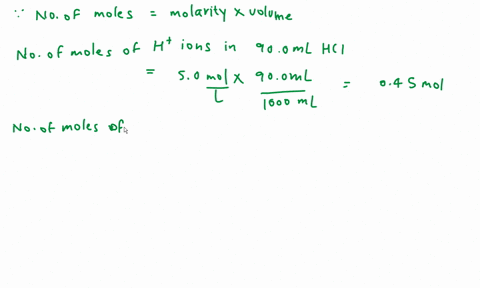 ∵ No. of moles = molarity x volume
No. of moles of H⁺ ions in 90.0 mL HCl
= 5.0 mol/L x 90.0mL/1000 mL = 0.45 mol
No. of moles of